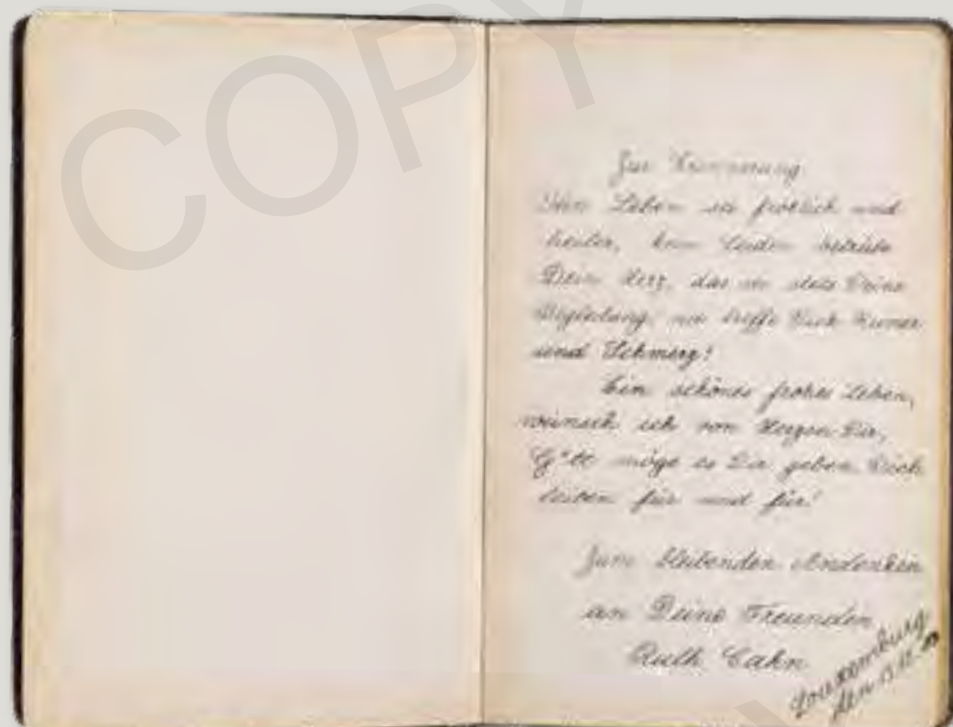 COPY
Zur Erinnerung
Dein Leben sei fröhlich und
heiter, kein Leiden betrübe
Dein Herz, das sei stets Deine
Begleitung, nie treffe Dich Kumer
und Schmerz!
Ein schönes frohes Leben,
wünsch ich von Herzen Dir,
G'tt möge es Dir geben Dich
leiten für und für!
Zum bleibenden Andenken
an Deine Freundin
Ruth Cahn
Luxemburg
den